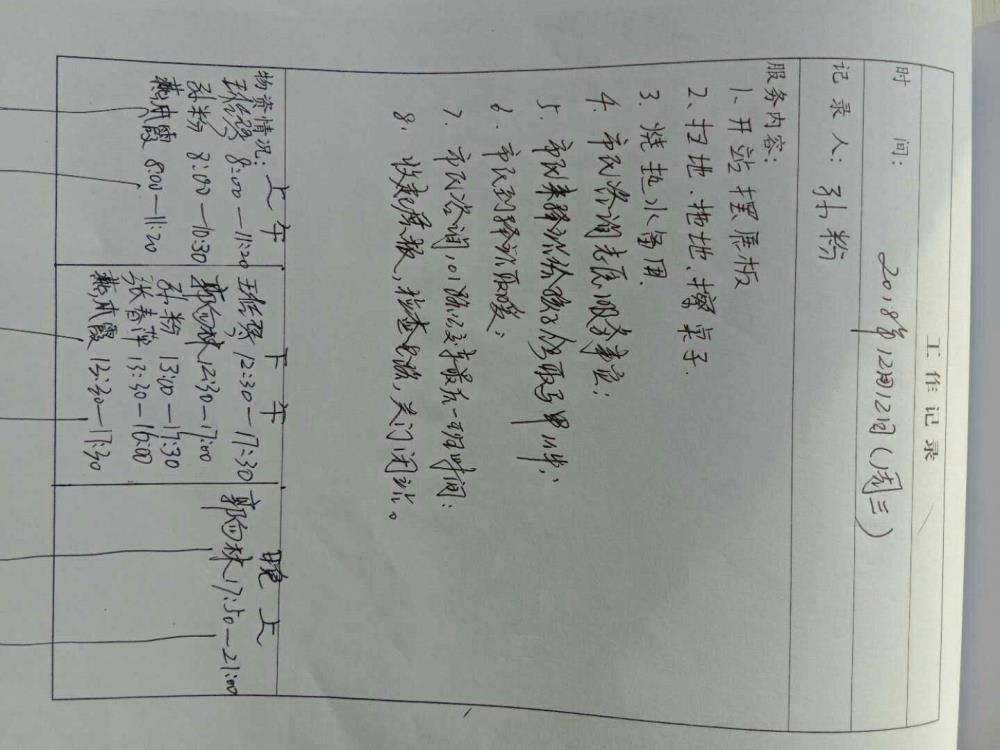 工作记录
时 间: 2018年12月12日(周三)
记录人: 孙粉
服务内容:
1、开站摆展板
2、扫地、拖地、擦桌子.
3、烧热水备用.
4、市民咨询志愿服务事宜;
5、市民来驿站
6、市民到驿站取暖;
7、市民咨询,01路公交车最后一班时间;
8、收起展板、检查电路,关门闭站。
物资情况: 上午
8:00—11:20
孙粉 8:00—10:30
8:00—11:20
下午
12:30—17:30
12:30—17:00
孙粉 13:00—17:30
张春萍 13:30—16:00
17:30
晚上
17:50—21:00